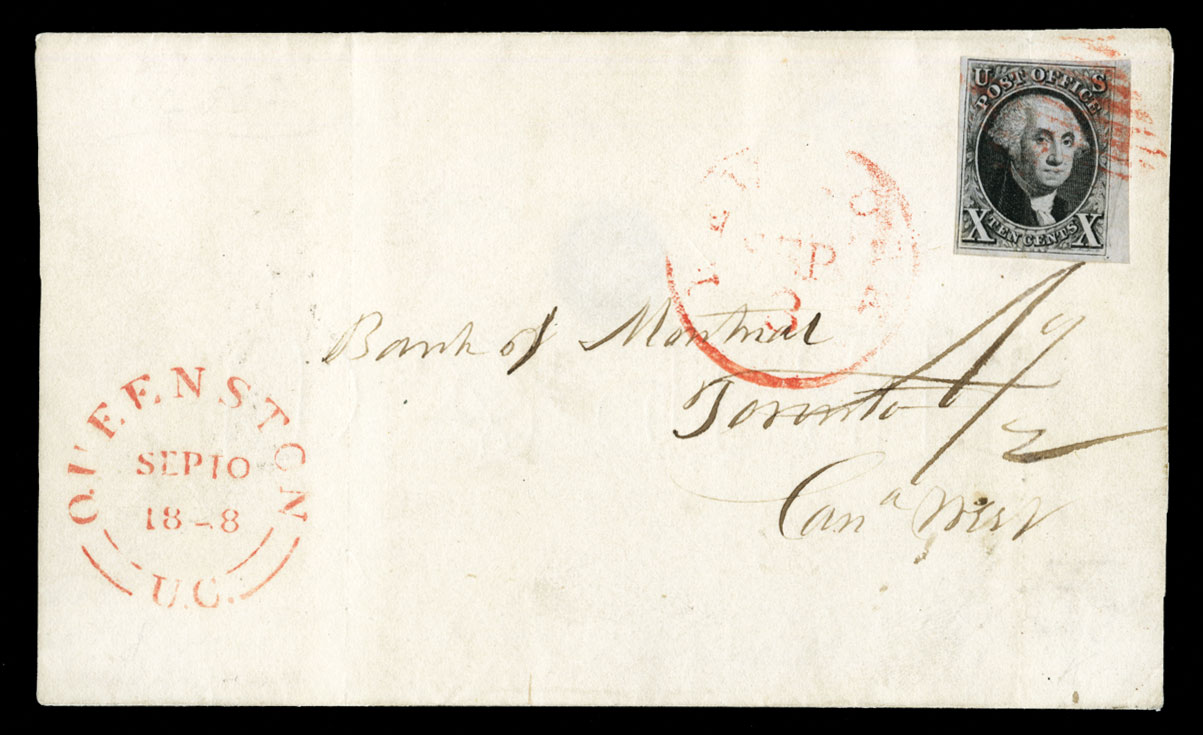 U S
POST OFFICE
X TEN CENTS X
NEW YORK
SEP
8
Bank of Montreal
Toronto
Canᵃ West
QUEENSTON
SEP 10
18-8
U.C.